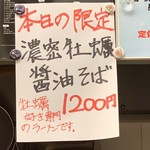 本日の限定
濃密牡蠣
醤油そば
牡蠣
好き専門
のラーメンです。
1200円